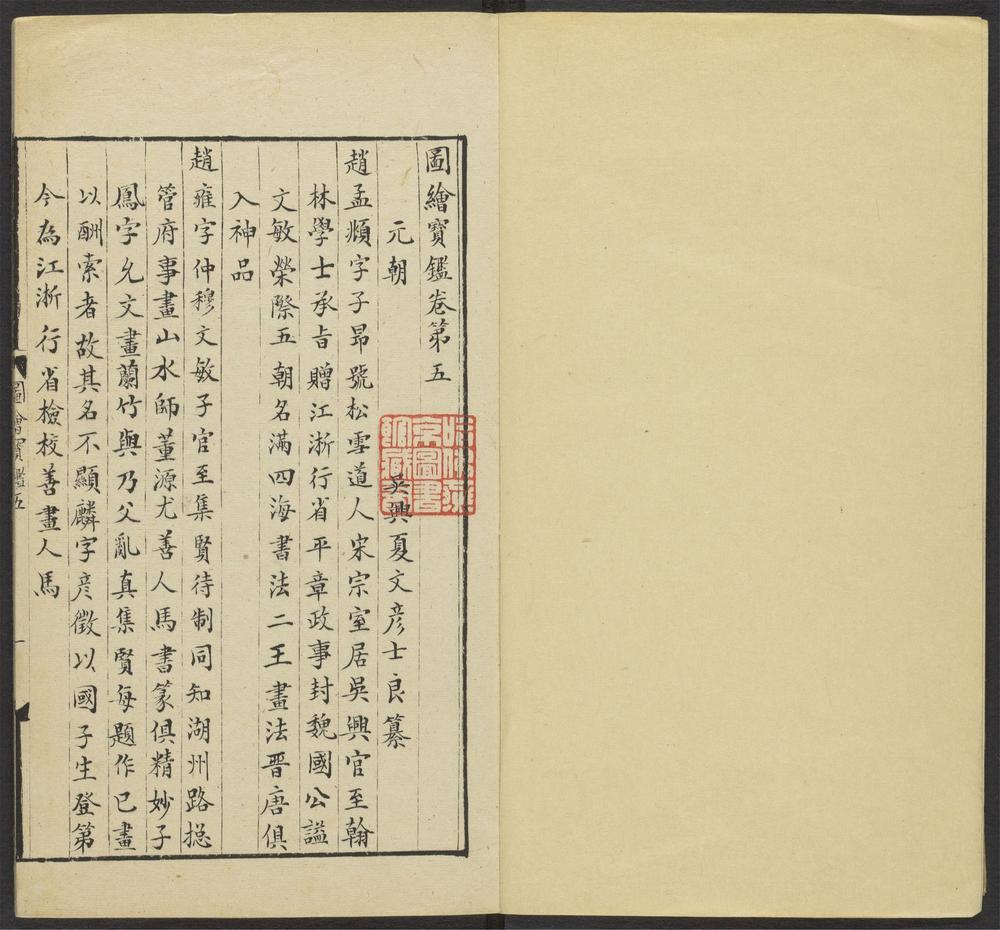 圖繪寶鑑卷第五
元朝 吳興夏文彦士良纂
趙孟頫字子昻號松雪道人宋宗室居吳興官至翰
林學士承㫖贈江浙行省平章政事封魏國公謚
文敏榮際五朝名滿四海書法二王畫法晋唐俱
入神品
趙雍字仲穆文敏子官至集賢待制同知湖州路揔
管府事畫山水師董源尤善人馬書篆俱精妙子
鳳字允文畫蘭竹與乃父亂真集賢每題作已畫
以酬索者故其名不顯麟字彦徵以國子生登第
今為江浙行省檢校善畫人馬
圖繪寳鑑五
一